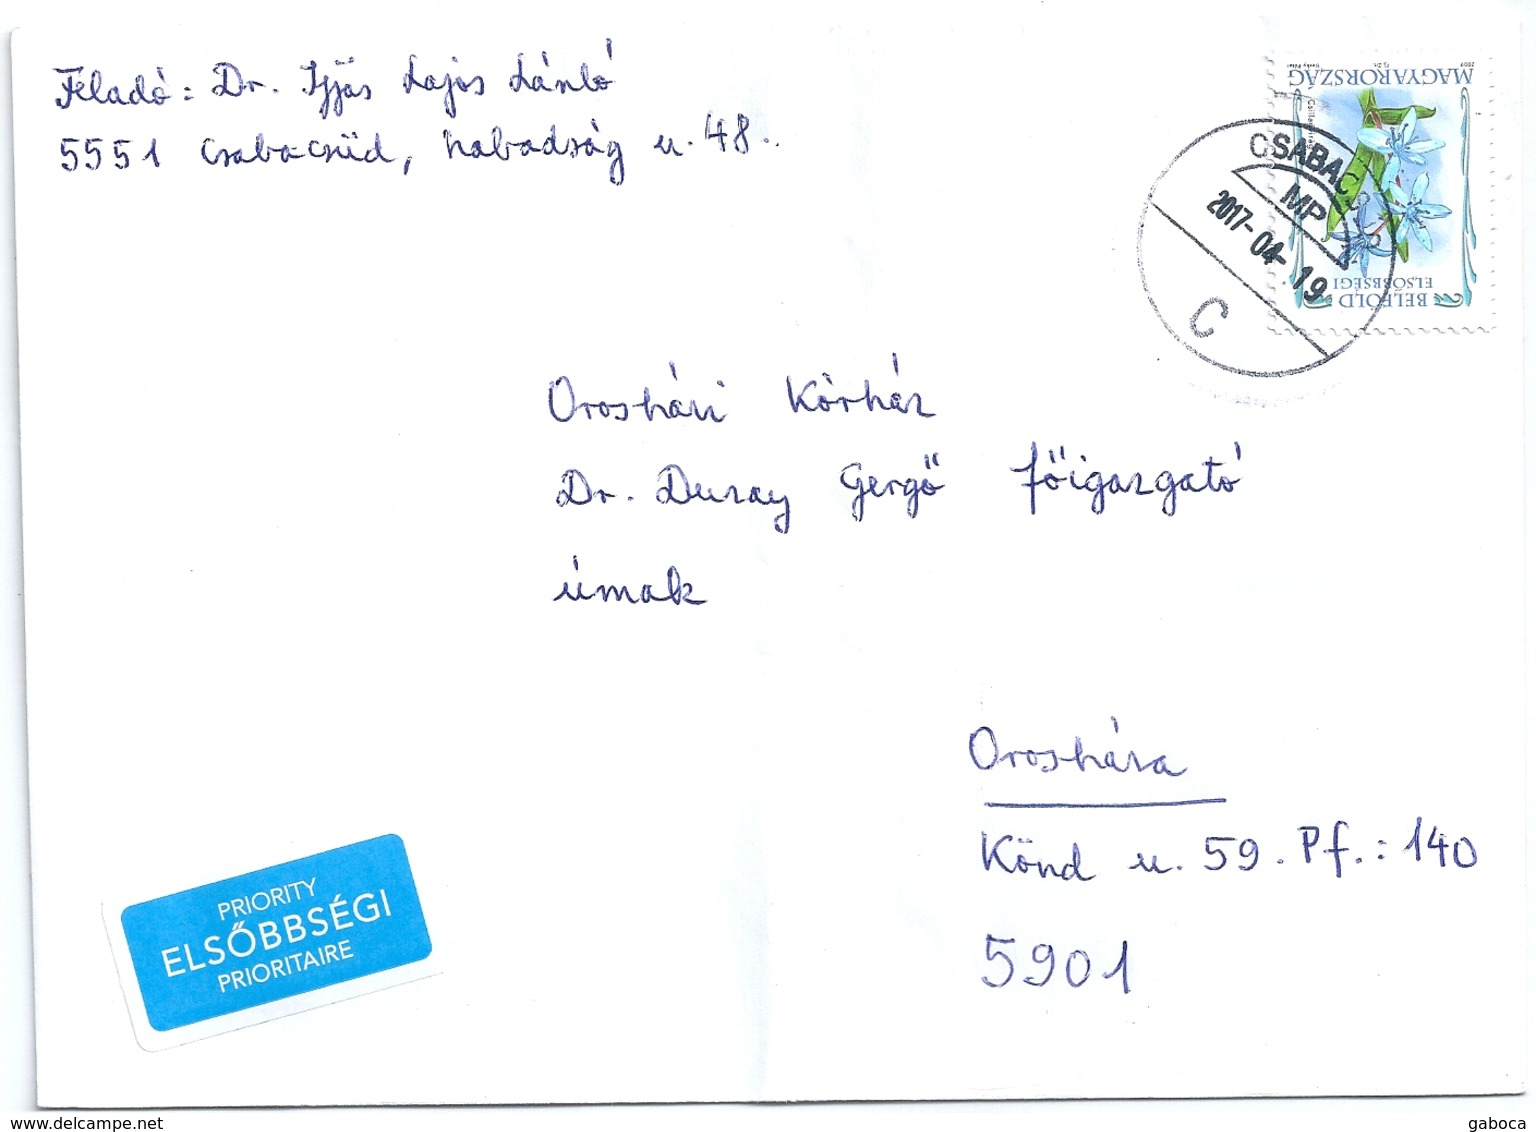 Feladó: Dr. Ijjas Lajos László
5551 Csabacsűd, Szabadság u. 48.
MAGYARORSZÁG
BELFÖLD
ELSŐBBSÉGI
CSABAC
MP
2017-04-19
C
Orosházi Kórház
Dr. Duray Gergő főigazgató
úrnak
Orosháza
Könd u. 59. Pf.: 140
5901
PRIORITY
ELSŐBBSÉGI
PRIORITAIRE
delcampe.net
gaboca